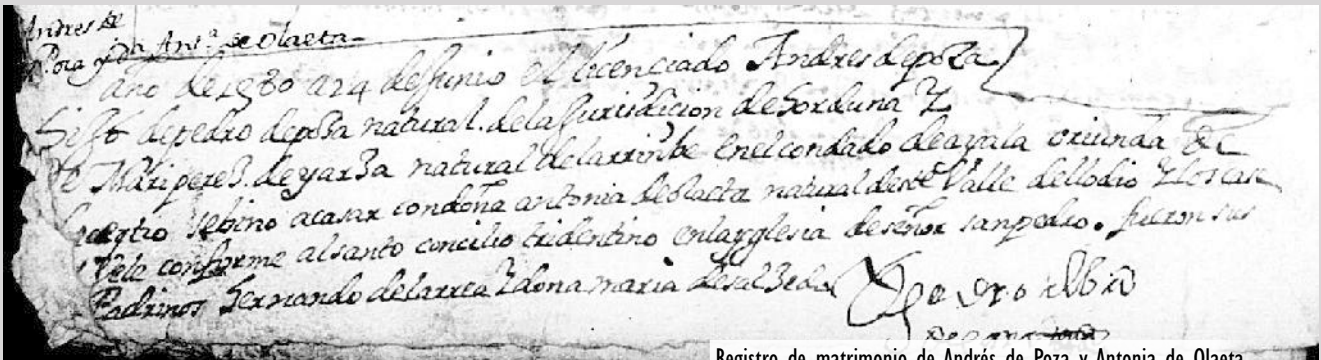 Andres de
Poza y da Anta de Olaeta
año de 1580 a 24 de Junio el licenciado Andres de poza
hijo de pedro de poza natural de la Jurisdicion de horduna y
de Mari perez de yarza natural de larrinbe en el condado de ayala oriunda de
se bino a casar con doña antonia de olaeta natural deste Valle de llodio y los case
y Vele conforme al santo concilio tridentino en la yglesia de señor san pedro. fueron sus
Padrinos hernando de larrea y dona maria de salzedo
Registro de matrimonio de Andrés de Poza y Antonia de Olaeta